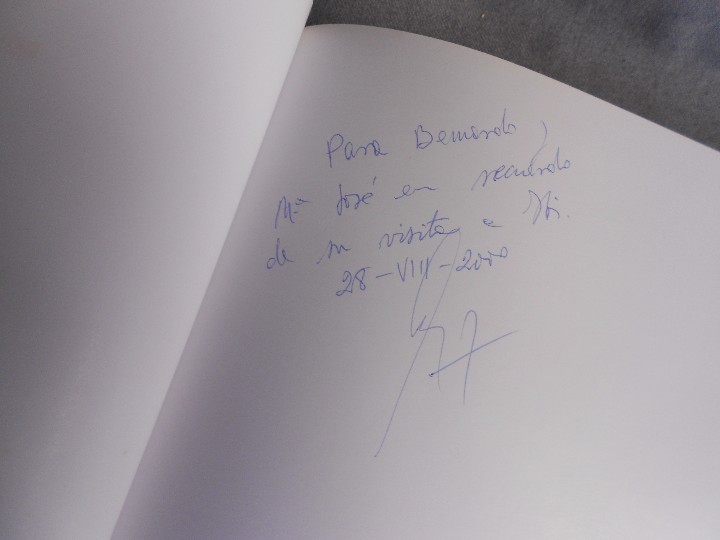 Para Bernardo y
Mª José en recuerdo
de su visita a
28-VIII-2000